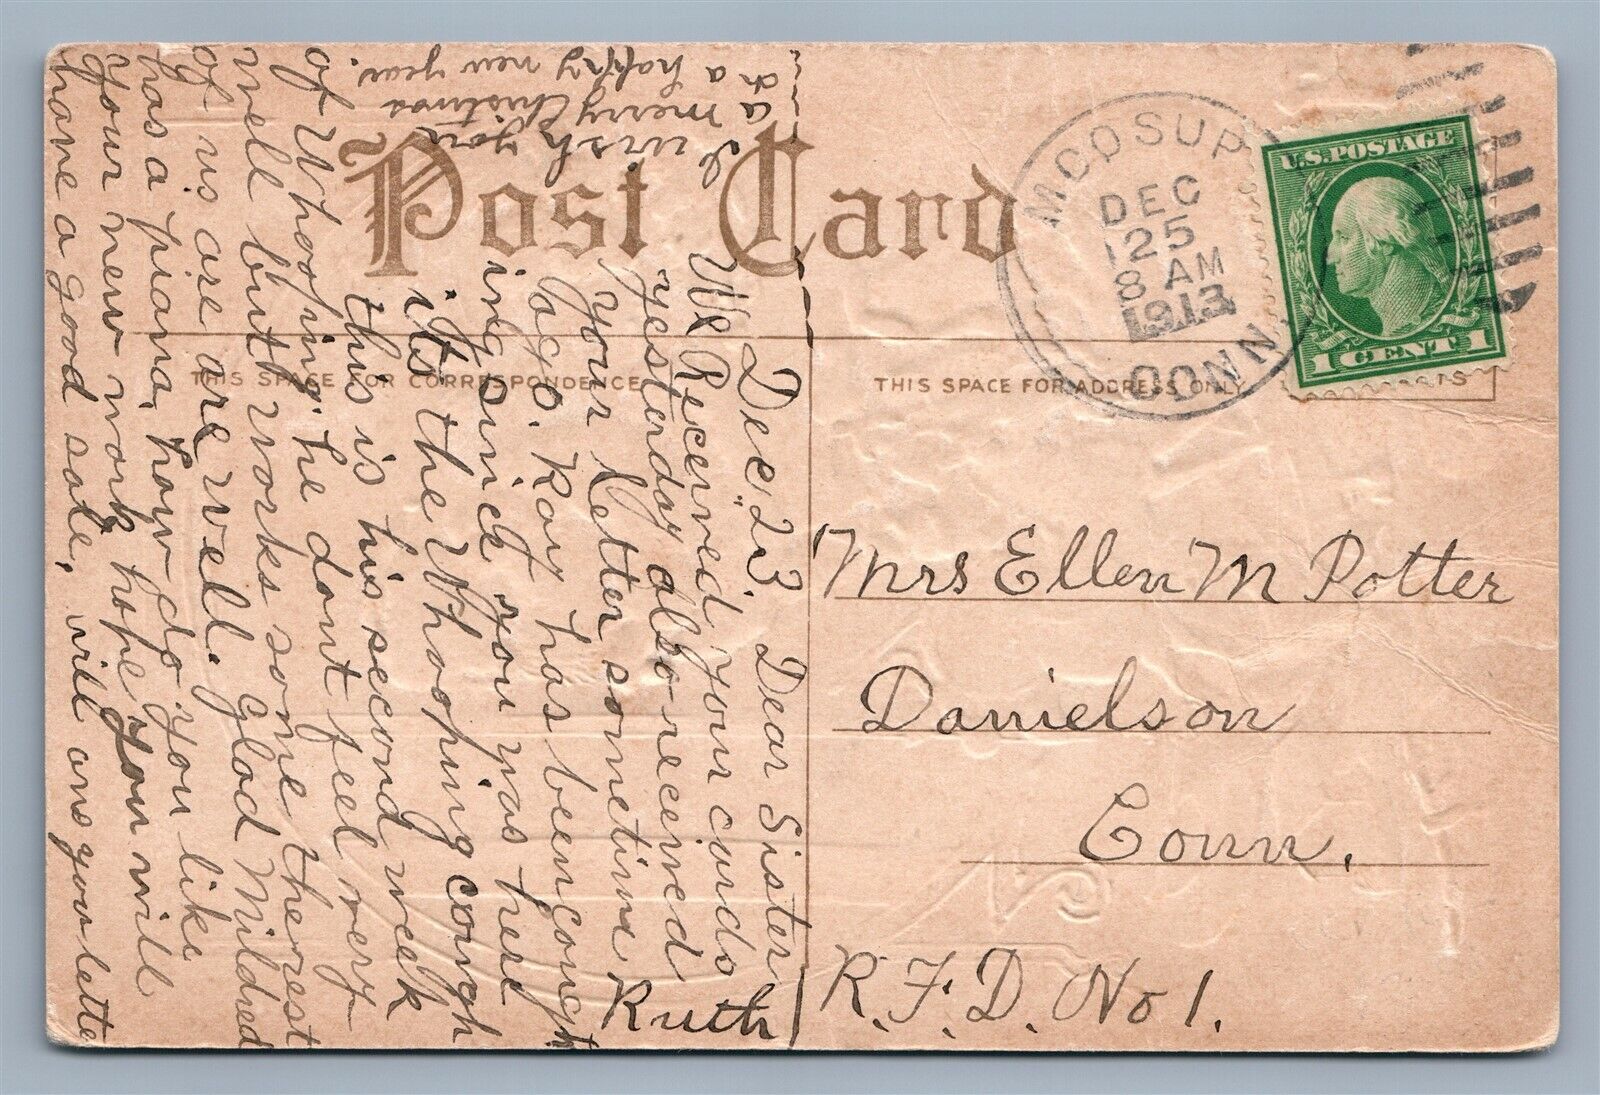 Post Card
THIS SPACE FOR CORRESPONDENCE
THIS SPACE FOR ADDRESS ONLY
MOOSUP
DEC
25
8 AM
1913
CONN.
U.S. POSTAGE
1 CENT 1
Mrs Ellen M Potter
Danielson
Conn.
R.F.D. No 1.
Dec, 23. Dear Sister
We Received your cards
yesterday also received
your letter sometime
ago. Roy has been cough
ing since you was here
its the Whooping cough
this is his second week
of Whooping. he dont feel very
well but works some the rest
of us are are well. Glad Mildred
has a piana, how do you like
your new work hope you will
have a good sale, will ans you lette
I wish you
a merry Christmas
& a happy new year.
Ruth